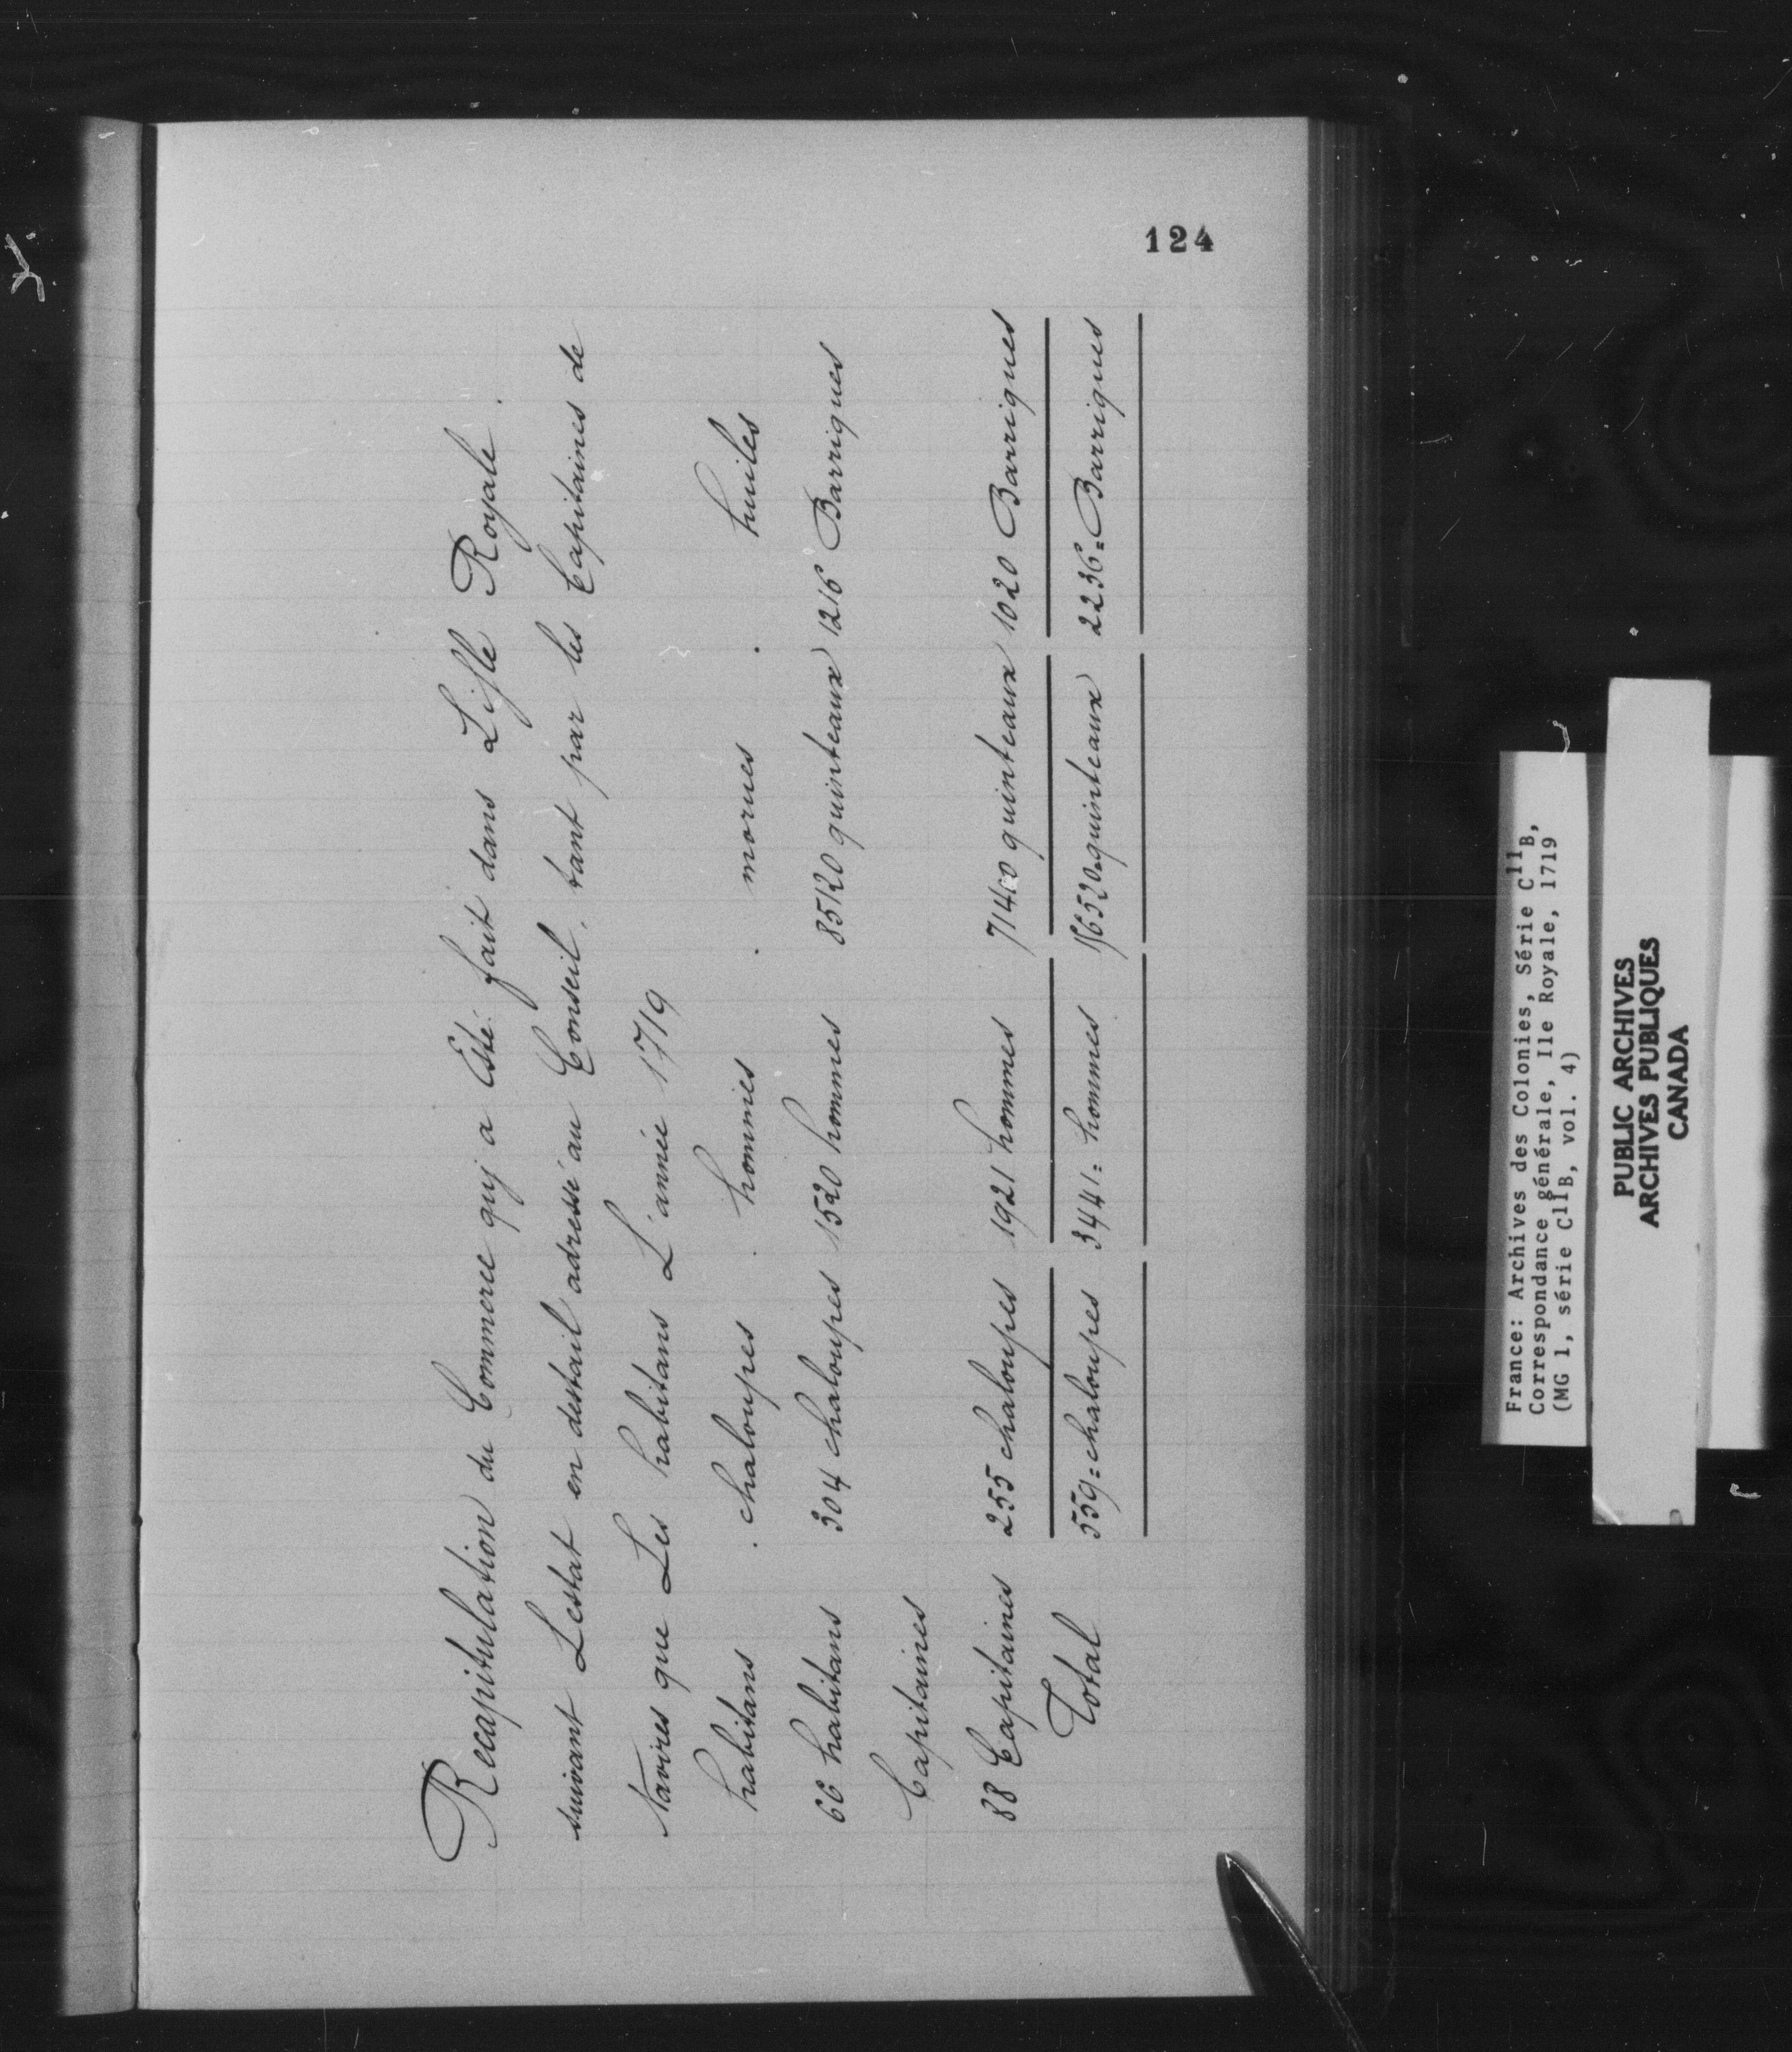 124
Recapitulation du Commerce quj a Esté fait dans Lisle Royale.
suivant Lestat en destail adressé au Conseil, tant par les Capitaines de
Navires que Les habitans L'année 1719
habitans . chaloupes . hommes . morues . huiles
66 habitans 304 chaloupes 1520 hommes 85120 quinteaux 1216 Barriques
Capitaines
88 Capitaines 255 chaloupes 1921 hommes 71400 quinteaux 1020 Barriques
Total 559=chaloupes 3441=hommes 156520=quinteaux 2236=Barriques
France: Archives des Colonies, Série C11B,
Correspondance générale, Ile Royale, 1719
(MG 1, série C11B, vol. 4)
PUBLIC ARCHIVES
ARCHIVES PUBLIQUES
CANADA